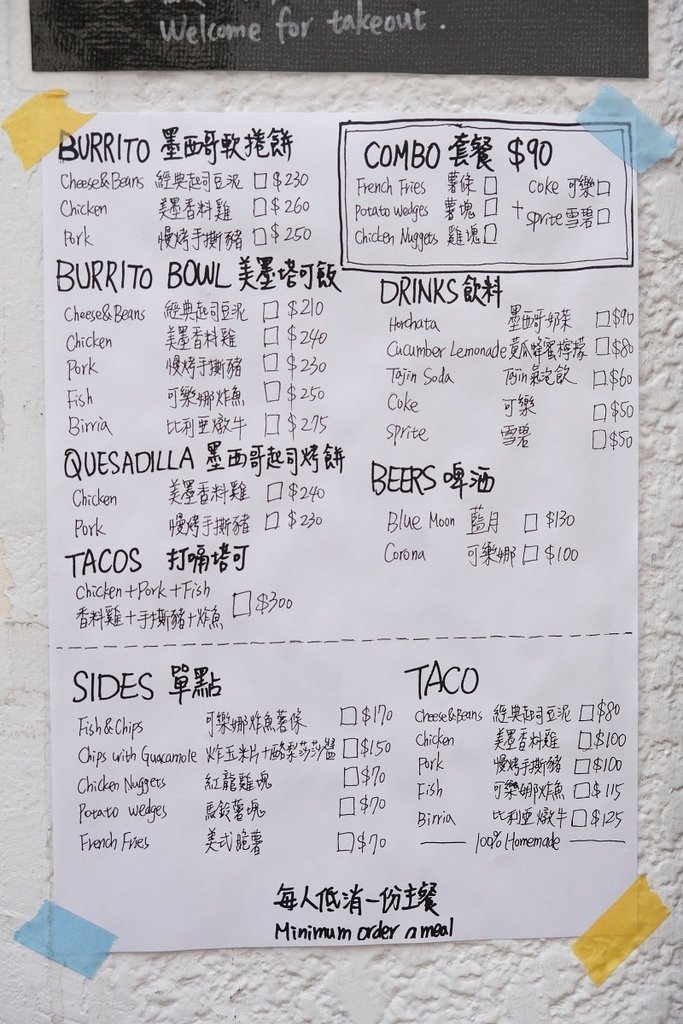 Welcome for takeout.
BURRITO 墨西哥軟捲餅
Cheese&Beans 經典起司豆泥 □ $230
Chicken 美墨香料雞 □ $260
Pork 慢烤手撕豬 □ $250
COMBO 套餐 $90
French Fries 薯條 □
Potato Wedges 薯塊 □
Chicken Nuggets 雞塊 □
+
Coke 可樂 □
Sprite 雪碧 □
BURRITO BOWL 美墨塔可飯
Cheese&Beans 經典起司豆泥 □ $210
Chicken 美墨香料雞 □ $240
Pork 慢烤手撕豬 □ $230
Fish 可樂娜炸魚 □ $250
Birria 比利亞燉牛 □ $275
QUESADILLA 墨西哥起司烤餅
Chicken 美墨香料雞 □ $240
Pork 慢烤手撕豬 □ $230
TACOS 打嗝塔可
Chicken+Pork+Fish
香料雞+手撕豬+炸魚 □ $300
DRINKS 飲料
Horchata 墨西哥奶茶 □ $90
Cucumber Lemonade 黃瓜蜂蜜檸檬 □ $80
Tajin Soda Tajin氣泡飲 □ $60
Coke 可樂 □ $50
Sprite 雪碧 □ $50
BEERS 啤酒
Blue Moon 藍月 □ $130
Corona 可樂娜 □ $100
SIDES 單點
Fish&Chips 可樂娜炸魚薯條 □ $170
Chips with Guacamole 炸玉米片+酪梨莎莎醬 □ $150
Chicken Nuggets 紅龍雞塊 □ $70
Potato Wedges 馬鈴薯塊 □ $70
French Fries 美式脆薯 □ $70
TACO
Cheese&Beans 經典起司豆泥 □ $80
Chicken 美墨香料雞 □ $100
Pork 慢烤手撕豬 □ $100
Fish 可樂娜炸魚 □ $115
Birria 比利亞燉牛 □ $125
100% Homemade
每人低消一份主餐
Minimum order a meal